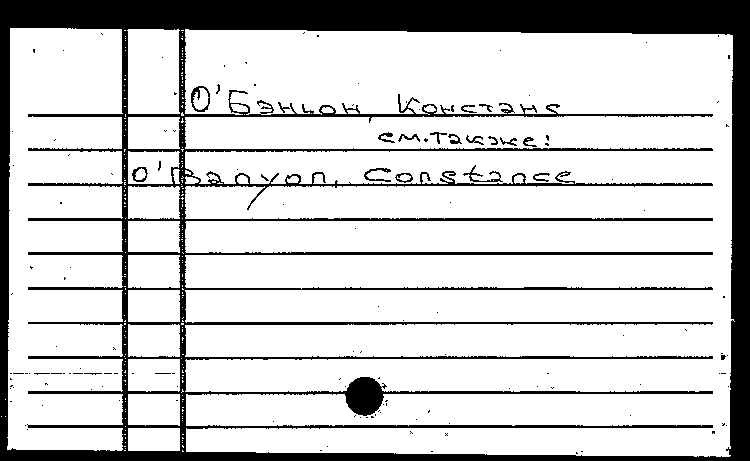 О'Бэньон, Констанс
см.также:
O'Banyon, Constance